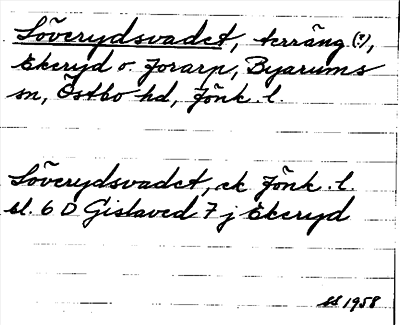 Söverydsvadet, terräng (?),
Ekeryd o. Forarp, Byarums
sn, Östbo hd, Jönk. l.
Söverydsvadet, ek Jönk. l.
bl. 6 D Gislaved 7 j Ekeryd
1958